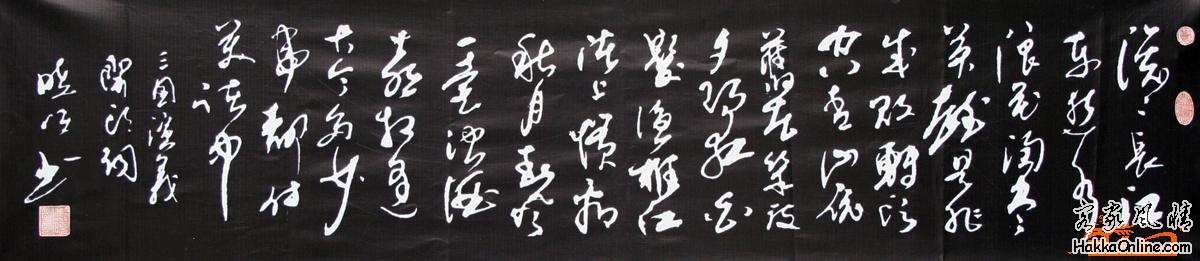 滚滚長江
東逝水
浪花淘尽
英雄是非
成败轉頭
空青山依
舊在几度
夕陽紅白
髮漁樵江
渚上惯看
秋月春风
一壶濁酒
喜相逢
古今多少
事都付
笑談中
三國演義
開头詞
书
客家风情
HakkaOnline.com